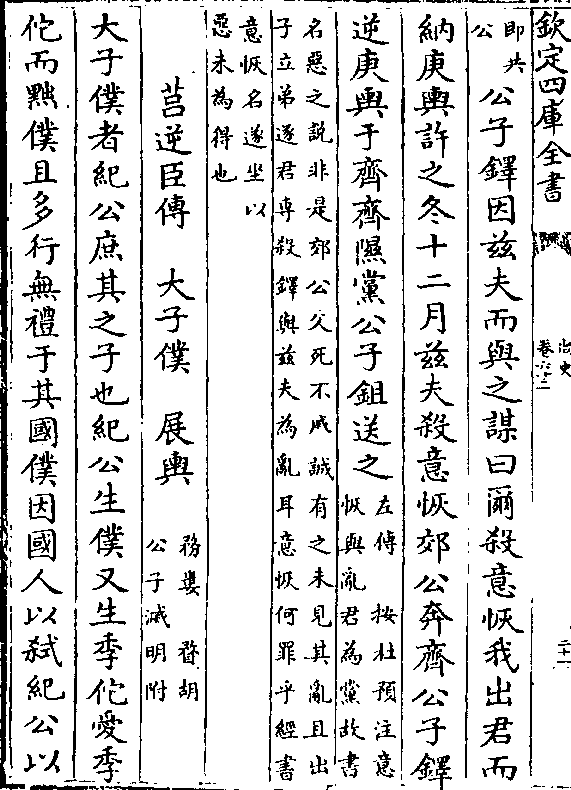 欽定四庫全書
尚史
卷六十三
二十一
即共
公
公子鐸因兹夫而與之謀曰爾殺意恢我出君而
納庚輿許之冬十二月兹夫殺意恢郊公奔齊公子鐸
逆庚輿于齊齊隰黨公子鉏送之
左傳　按杜預注意
恢與亂君為黨故書
名惡之說非是郊公父死不戚誠有之未見其亂且出
子立弟遂君專殺鐸與兹夫為亂耳意恢何罪乎經書
意恢名遂坐以
惡未為得也
莒逆臣傳　大子僕　展輿
務婁　瞀胡
公子滅明附
大子僕者紀公庶其之子也紀公生僕又生季佗愛季
佗而黜僕且多行無禮于其國僕因國人以弑紀公以